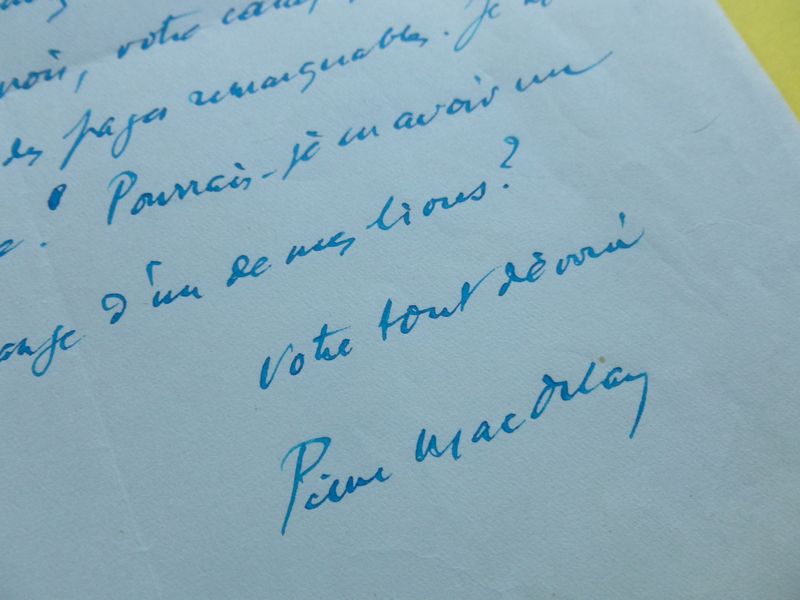 votre
des pages remarquables. Je
? Pourrais-je en avoir un
d'un de mes livres?
Votre tout dévoué
Pierre Mac Orlan